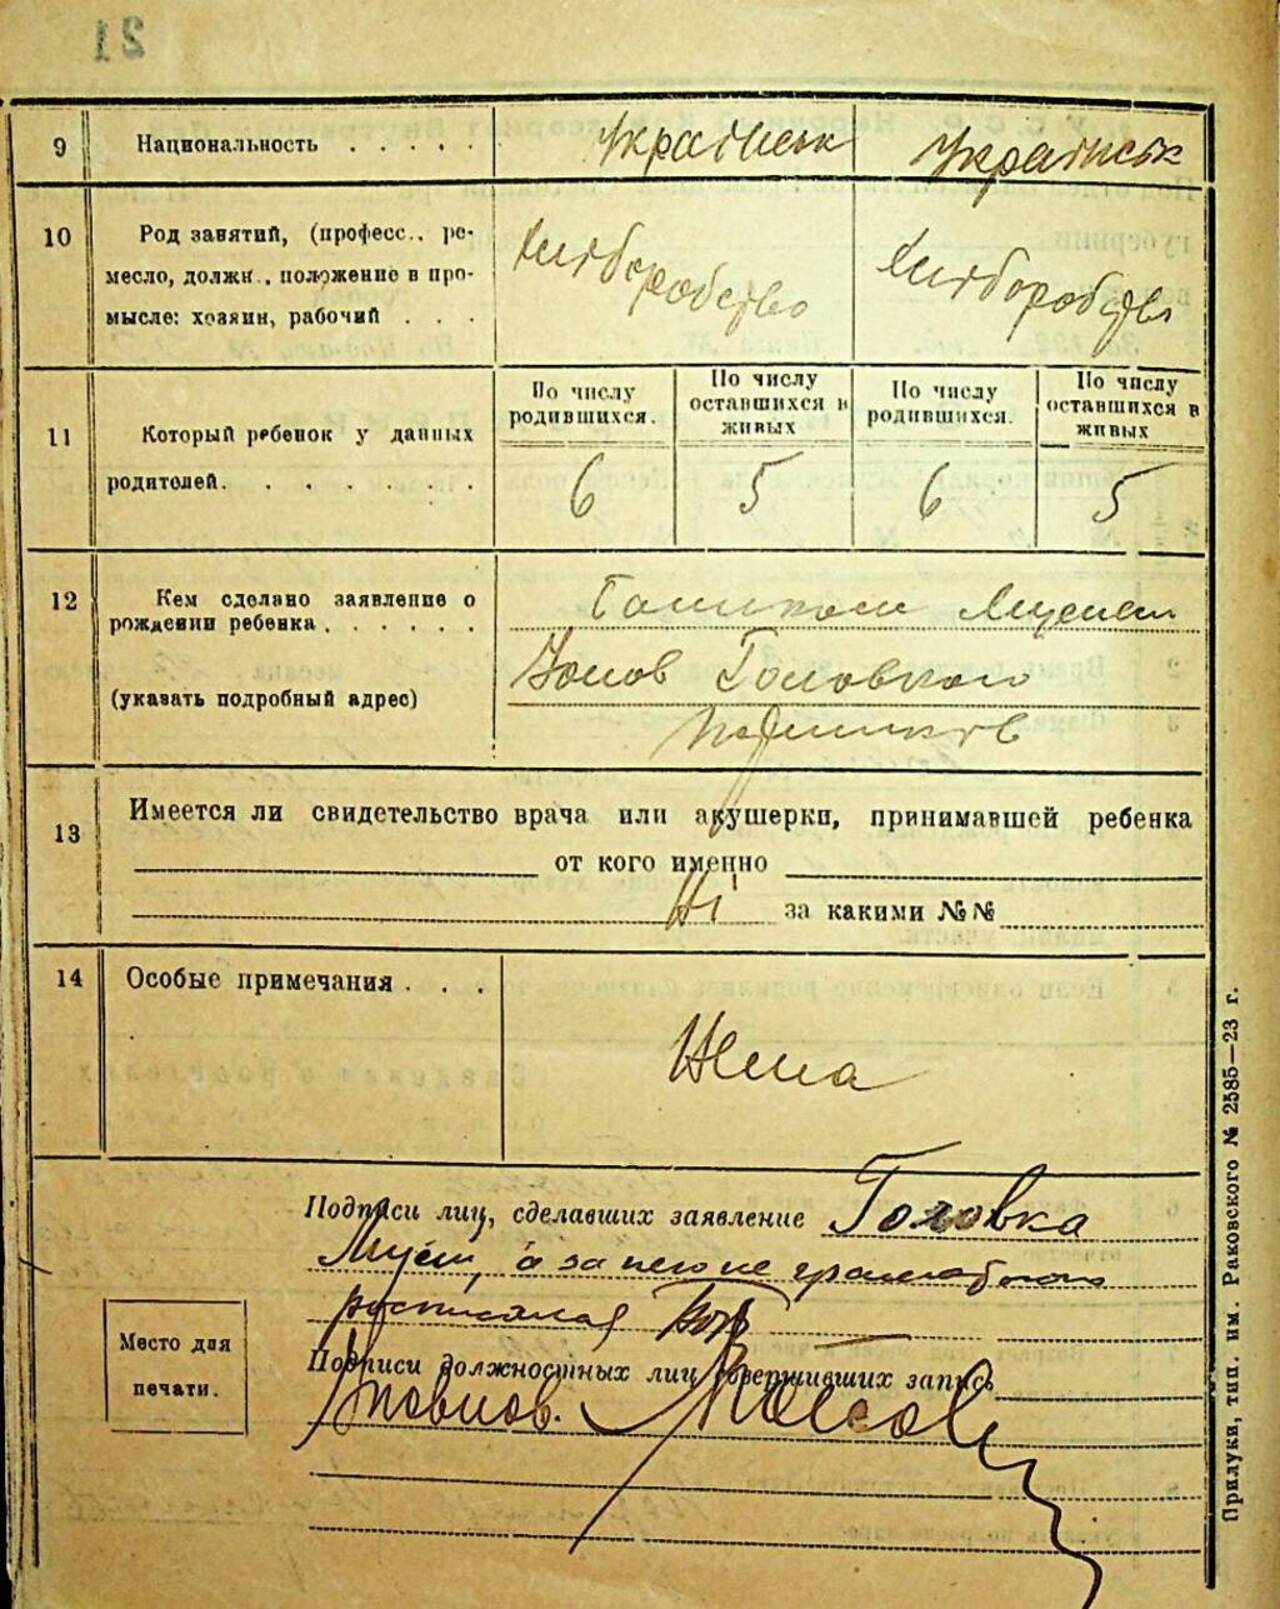 21
9 Национальность . . . . . Українськ Українськ
10 Род занятий, (професс., ре-
месло, должн., положение в про-
мысле: хозяин, рабочий . . .
Хліборобство Хліборобство
11 Который ребенок у данных
родителей. . . . . . . .
По числу родившихся. По числу оставшихся в живых По числу родившихся. По числу оставшихся в живых
6 5 6 5
12 Кем сделано заявление о
рождении ребенка . . . . . .
(указать подробный адрес)
Головкою
13 Имеется ли свидетельство врача или акушерки, принимавшей ребенка
от кого именно
Ні за какими №№
14 Особые примечания . . .
Нема
Подписи лиц, сделавших заявление Головка
а за него не грамотного
росписался
Место для
печати.
Подписи должностных лиц совершивших запись
Прилуки, тип. им. Раковского № 2585—23 г.